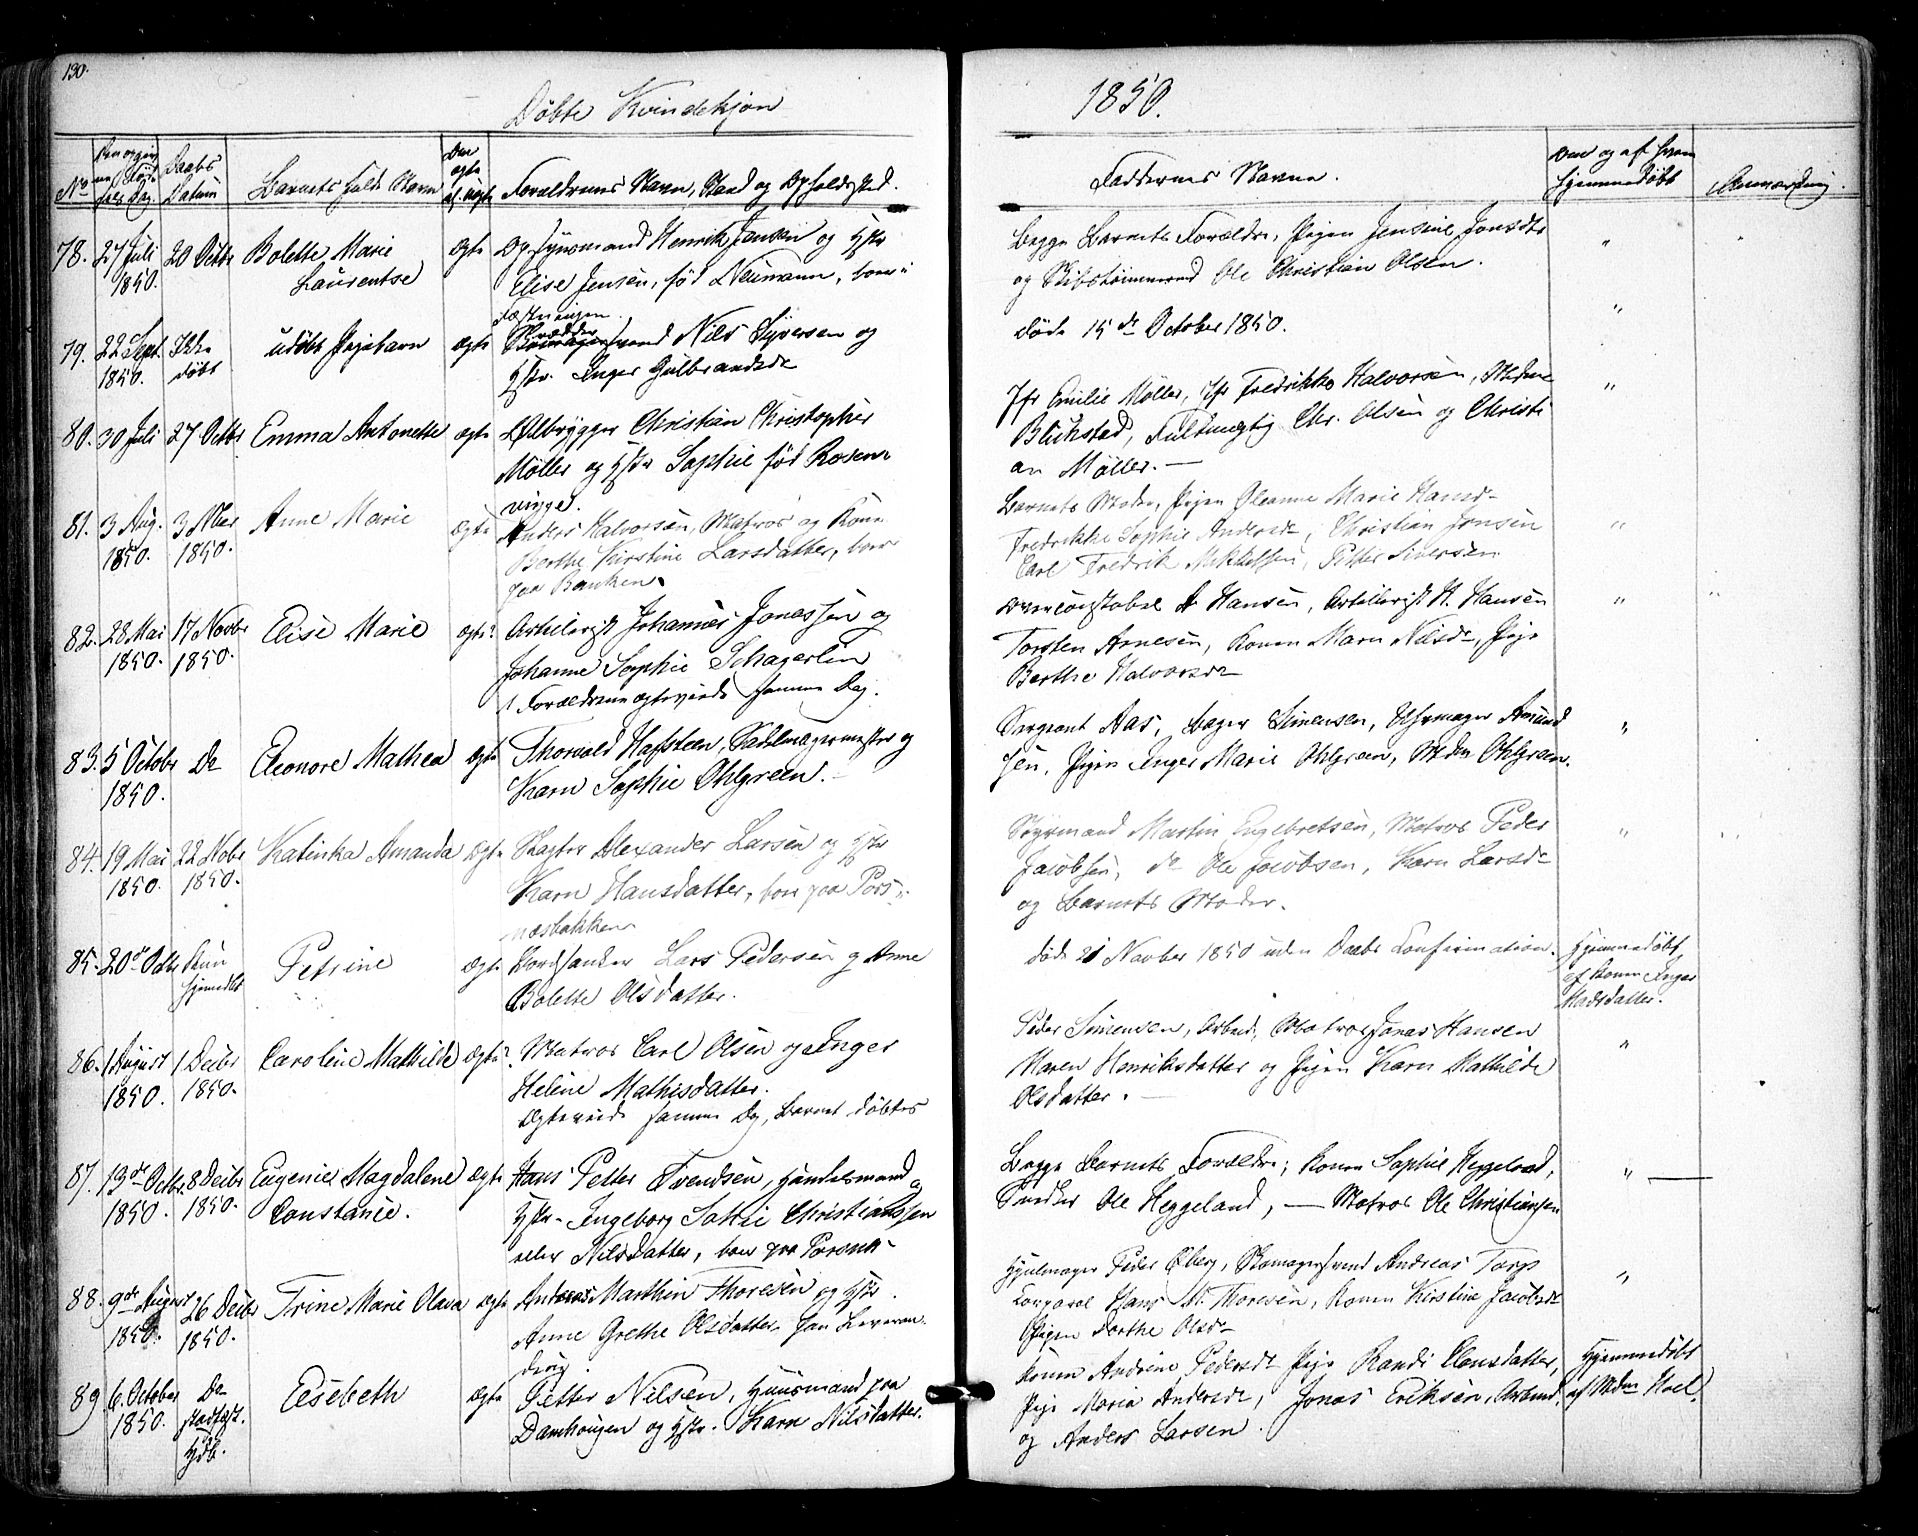 130.
Døbte Kvindekjøn
1850.
No
Daabs Datum
Barnets fulde Navn
Forældrenes Navn, Stand og Opholdssted.
Faddernes Navne.
Om og af hvem hjemmedøbt
Anmærkning.
78. 27 Juli 1850. 20 Octbr Bolette Marie Laurentse ægte Opsynsmand Henrik Jensen og Hstr
Elise Jensen, født Neumann, boer i
Fæstningen.
Begge Barnets Forældre, Pigen Jensine Jonsdtr
og Skibstømmermd Ole Christian Olsen. "
79. 22 Sept. 1850. Ikke døbt udøbt Pigebarn ægte Skrædder svend Nils Syversen og
Hstr. Inger Gulbrandsdr
døde 15de October 1850. "
80. 30 Juli 27 Octbr Emma Antonette ægte Ølbrygger Christian Christopher
Møller og Hstr Sophie født Rosen-
vigge.
Jfr Emilie Møller, Jfr Fredrikke Halvorsen, Mdme
Blichstad, Fuldmægtig Chr. Olsen og Christi
an Møller. — "
81. 3 Aug. 1850. 3 Nber 1850. Anne Marie ægte Anders Halvorsen, Matros og Kone
Berthe Kirstine Larsdatter, boer
paa Banken.
Barnets Moder, Pigen Oleanne Marie Hansd-
Fredrikke Sophie Andersdr, Christian Jensen
Carl Fredrik Mikkelsen, Petter Siversen "
82. 28 Mai 1850. 17 Novbr 1850. Elise Marie ægte Artillerist Johannes Jonassen og
Johanne Sophie Schagerlin
Forældrene ægteviede samme Dag.
Overconstabel A Hansen, Artillerist H. Hansen
Torsten Arnesen, Konen Maren Nilsdr, Pige
Berthe Halvorsdr "
83. 5 Octobr 1850. Do Eleonore Mathea ægte Thorvald Hafsteen, Sadelmagermester og
Karn Sophie Ohlgreen.
Sergeant Aas, Bager Simensen, Uhrmager Amund
sen, Pigen Inger Marie Ohlgreen, Mdm Ohlgreen. "
84. 19 Mai 1850. 22 Nobr 1850. Katinka Amanda ægte Slagter Alexander Larsen og Hstr
Karn Hansdatter, boer paa Pors-
næsbakken
Styrmand Martin Engebretsen, Matros Peder
Jacobsen, do Ole Jacobsen, Karn Larsdr
og Barnets Moder. "
85. 20de Octbr Kun hjemmedbt Petrine ægte Lars Pedersen og Anne
Bolette Olsdatter.
døde 21 Novber 1850 uden Daabs Confirmation.
Hjemmedøbt
af Konen Inger
Madsdatter.
86. 1 August 1850. 1 Decbr 1850. Caroline Mathilde ægte Matros Carl Olsen og Inger
Helene Mathisdatter.
Ægteviede samme Dag, Barnet døbtes
Peder Simensen, Arbeid., Matros Jonas Hansen
Maren Henriksdatter og Pigen Karn Mathilde
Olsdatter. — "
87. 13de Octbr. 1850. 8 Decbr 1850. Eugenie Magdalene Constance. ægte Hans Petter Svendsen, Handelsmand og
Hstr. Ingeborg Christianssen
eller Nilsdatter, boer paa Porsnæs-
Begge Barnets Forældre; Konen Sophie Heggeland,
Snedker Ole Heggeland, — Matros Ole Christiansen "
88. 9de August 1850. 26 Decbr 1850. Trine Marie Olava ægte Andreas Marthin Thoresen og Hstr
Anne Grethe Olsdatter
Hjulmager Peder Øberg, Skomagersvend Andreas Torp
Korporal Hans M. Thoresen, Konen Kirstine Jacobsdr
Pigen Dorthe Olsdr "
89 6. October 1850. Do stadfest. Hjdb. Elisebeth ægte Petter Nilsen, Huusmand paa
Damhougen og Hstr. Karn Nilsdatter.
Konen Andrine Pedersdr Pige Randi Clausdatter,
Pige Maria Andersdr, Jonas Eriksen, Arbmd,
og Anders Larsen.
Hjemmedøbt
af Mdm Hoel.